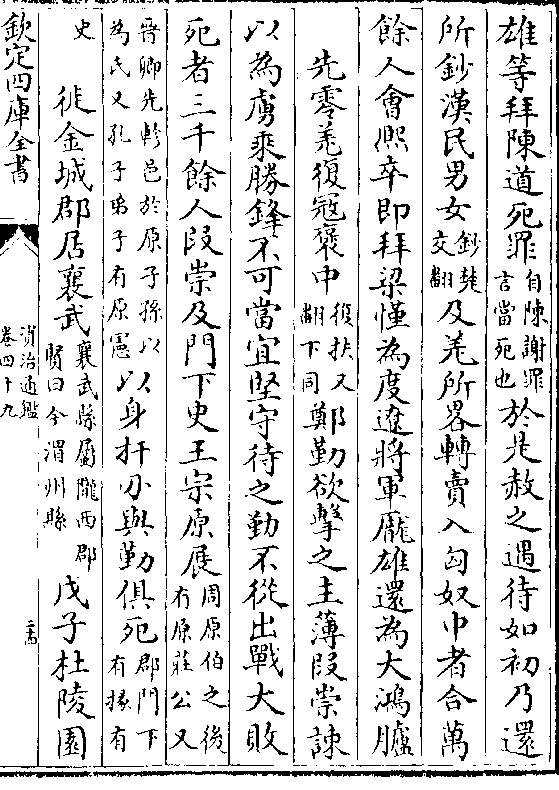 雄等拜陳道死罪自陳謝罪言當死也於是赦之遇待如初乃還
所鈔漢民男女鈔楚交翻及羌所畧轉賣入匈奴中者合萬
餘人會熈卒即拜梁慬為度遼將軍龎雄還為大鴻臚
先零羌復寇褒中復扶又翻下同鄭勤欲擊之主薄段崇諫
以為虜乘勝鋒不可當宜堅守待之勤不從出戰大敗
死者三千餘人段崇及門下史王宗原展周原伯之後有原莊公又
晉卿先軫邑於原子孫以為氏又孔子弟子有原憲以身扞刃與勤俱死郡門下有掾有
史徙金城郡居襄武襄武縣屬隴西郡賢曰今渭州縣戊子杜陵園
欽定四庫全書
資治通鑑
卷四十九